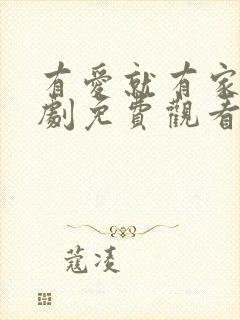 有愛就有家
劇免費觀看
蔻凌